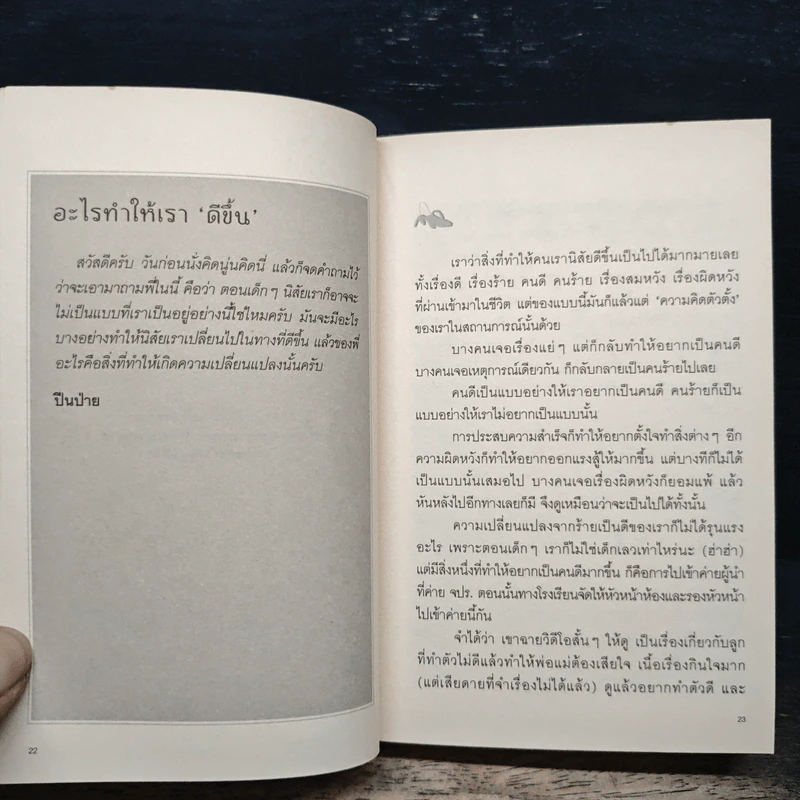 อะไรทำให้เรา ‘ดีขึ้น’
สวัสดีครับ วันก่อนนั่งคิดนู่นคิดนี่ แล้วก็จดคำถามไว้
ว่าจะเอามาถามพี่ในนี้ คือว่า ตอนเด็กๆ นิสัยเราก็อาจจะ
ไม่เป็นแบบที่เราเป็นอยู่อย่างนี้ใช่ไหมครับ มันจะมีอะไร
บางอย่างทำให้นิสัยเราเปลี่ยนไปในทางที่ดีขึ้น แล้วของพี่
อะไรคือสิ่งที่ทำให้เกิดความเปลี่ยนแปลงนั้นครับ
ปีนป่าย
22
เราว่าสิ่งที่ทำให้คนเรานิสัยดีขึ้นเป็นไปได้มากมายเลย
ทั้งเรื่องดี เรื่องร้าย คนดี คนร้าย เรื่องสมหวัง เรื่องผิดหวัง
ที่ผ่านเข้ามาในชีวิต แต่ของแบบนี้มันก็แล้วแต่ ‘ความคิดตัวตั้ง’
ของเราในสถานการณ์นั้นด้วย
บางคนเจอเรื่องแย่ๆ แต่ก็กลับทำให้อยากเป็นคนดี
บางคนเจอเหตุการณ์เดียวกัน ก็กลับกลายเป็นคนร้ายไปเลย
คนดีเป็นแบบอย่างให้เราอยากเป็นคนดี คนร้ายก็เป็น
แบบอย่างให้เราไม่อยากเป็นแบบนั้น
การประสบความสำเร็จก็ทำให้อยากตั้งใจทำสิ่งต่างๆ อีก
ความผิดหวังก็ทำให้อยากออกแรงสู้ให้มากขึ้น แต่บางทีก็ไม่ได้
เป็นแบบนั้นเสมอไป บางคนเจอเรื่องผิดหวังก็ยอมแพ้ แล้ว
หันหลังไปอีกทางเลยก็มี จึงดูเหมือนว่าจะเป็นไปได้ทั้งนั้น
ความเปลี่ยนแปลงจากร้ายเป็นดีของเราก็ไม่ได้รุนแรง
อะไร เพราะตอนเด็กๆ เราก็ไม่ใช่เด็กเลวเท่าไหร่นะ (ฮ่าฮ่า)
แต่มีสิ่งหนึ่งที่ทำให้อยากเป็นคนดีมากขึ้น ก็คือการไปเข้าค่ายผู้นำ
ที่ค่าย จปร. ตอนนั้นทางโรงเรียนจัดให้หัวหน้าห้องและรองหัวหน้า
ไปเข้าค่ายนี้กัน
จำได้ว่า เขาฉายวิดีโอสั้นๆ ให้ดู เป็นเรื่องเกี่ยวกับลูก
ที่ทำตัวไม่ดีแล้วทำให้พ่อแม่ต้องเสียใจ เนื้อเรื่องกินใจมาก
(แต่เสียดายที่จำเรื่องไม่ได้แล้ว) ดูแล้วอยากทำตัวดี และ
23